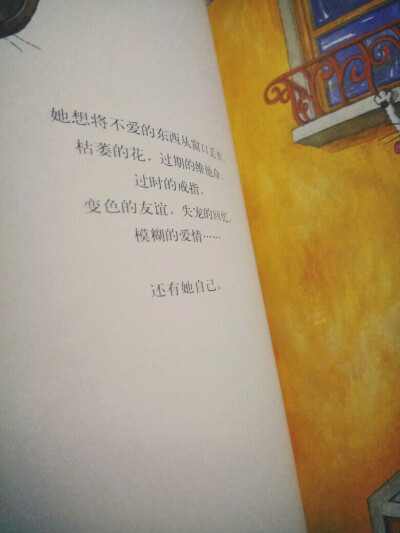 她想将不爱的东西从窗口丢弃，
枯萎的花，过期的维他命，
过时的戒指，
变色的友谊，失宠的回忆，
模糊的爱情……
还有她自己。